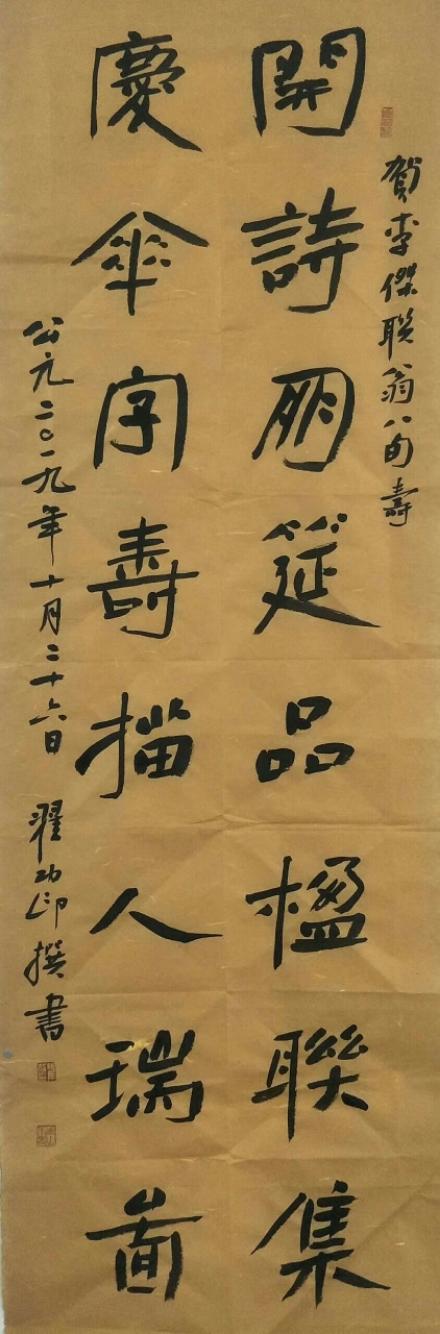 賀李傑聯翁八旬壽
開詩朋筵品楹聯集
慶傘字壽描人瑞圖
公元二〇一九年十月二十六日 翟功印撰書